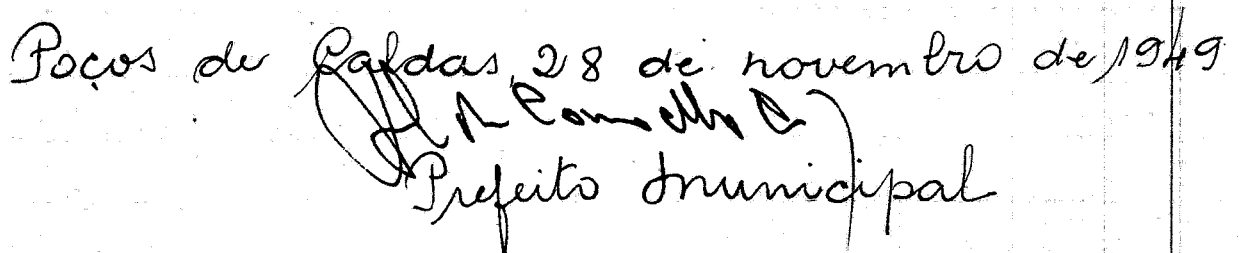 Poços de Caldas, 28 de novembro de 1949
Prefeito Municipal